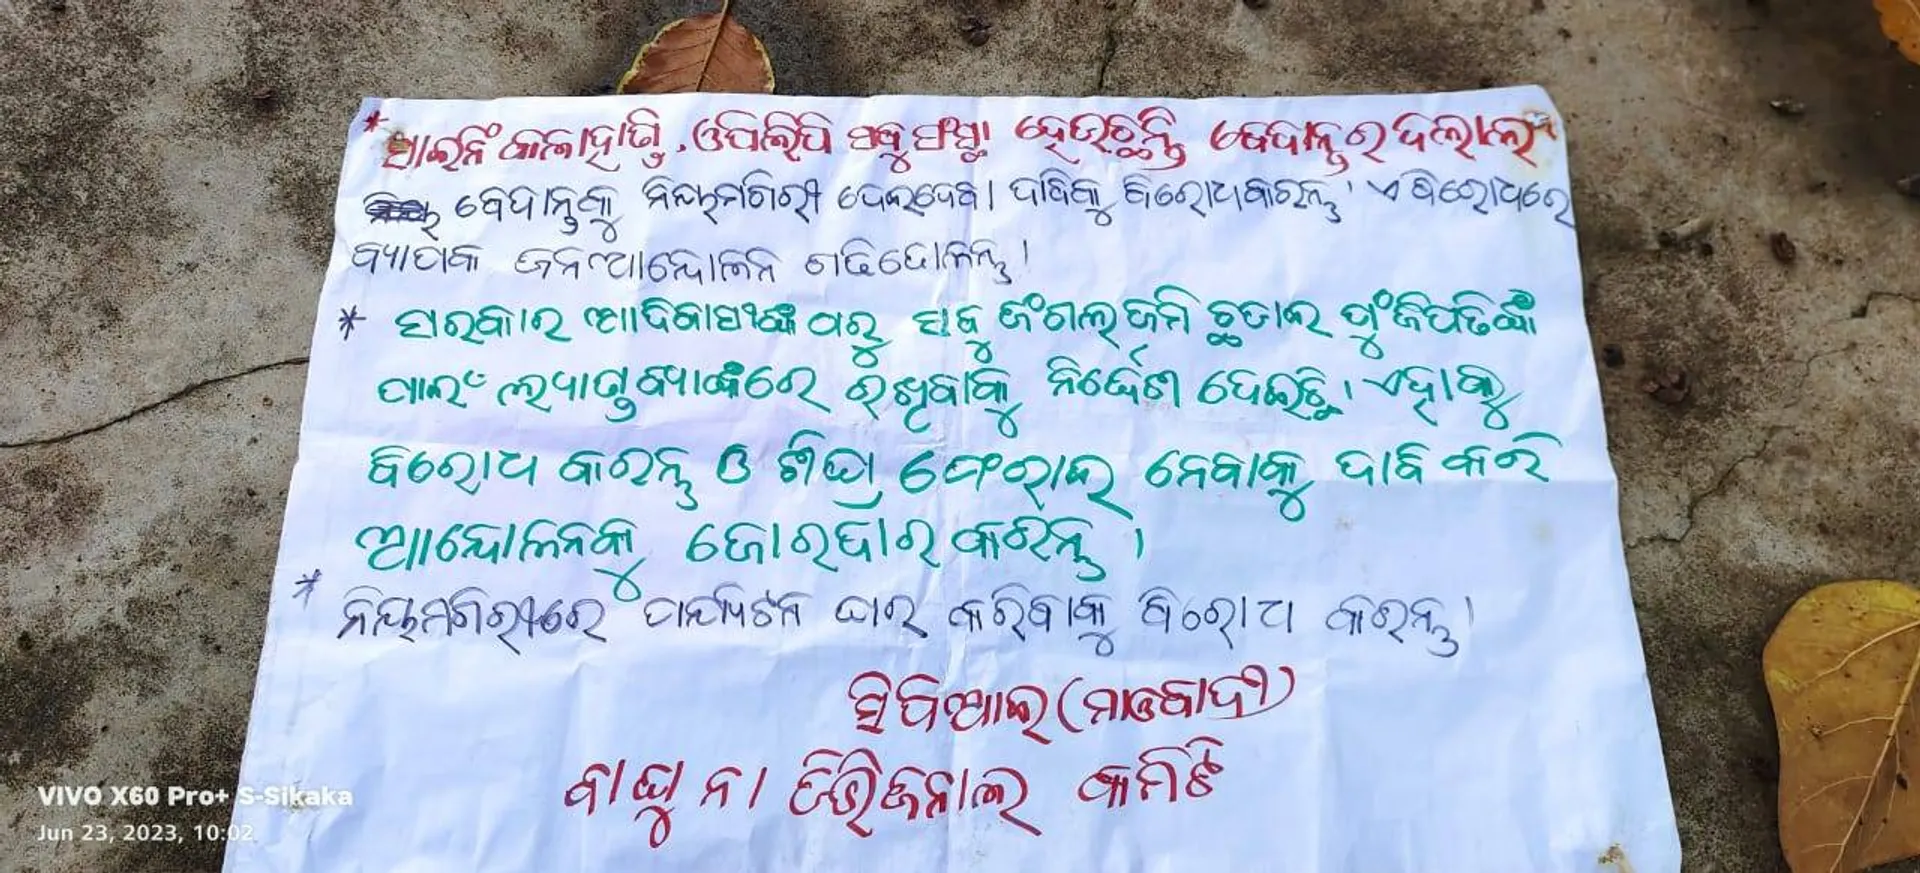 * ସାଇନିଂ କଳାହାଣ୍ଡି, ଓପିଲିପି ସବୁ ସଂସ୍ଥା ହେଉଛନ୍ତି ବେଦାନ୍ତର ଦଲାଲ
ବେଦାନ୍ତକୁ ନିୟମଗିରୀ ଦେଇଦେବା ଦାବିକୁ ବିରୋଧ କରନ୍ତୁ । ଏ ବିରୋଧରେ
ବ୍ୟାପକ ଜନଆନ୍ଦୋଳନ ଗଢିତୋଳନ୍ତୁ ।
* ସରକାର ଆଦିବାସୀଙ୍କ ଠାରୁ ସବୁ ଜଂଗଲ ଜମି ଛଡାଇ ପୁଂଜିପତିଙ୍କ
ପାଇଁ ଲ୍ୟାଣ୍ଡ ବ୍ୟାଙ୍କରେ ରଖିବାକୁ ନିର୍ଦ୍ଦେଶ ଦେଇଛି । ଏହାକୁ
ବିରୋଧ କରନ୍ତୁ ଓ ଶିଘ୍ର ଫେରାଇ ନେବାକୁ ଦାବି କରି
ଆନ୍ଦୋଳନକୁ ଜୋରଦାର କରନ୍ତୁ ।
* ନିୟମଗିରୀରେ ପର୍ଯ୍ୟଟନ ଘାଇ କରିବାକୁ ବିରୋଧ କରନ୍ତୁ ।
ସିପିଆଇ (ମାଓବାଦୀ)
ବାଘୁନା ଡିଭିଜନାଲ କମିଟି
VIVO X60 Pro+ S-Sikaka
Jun 23, 2023, 10:02